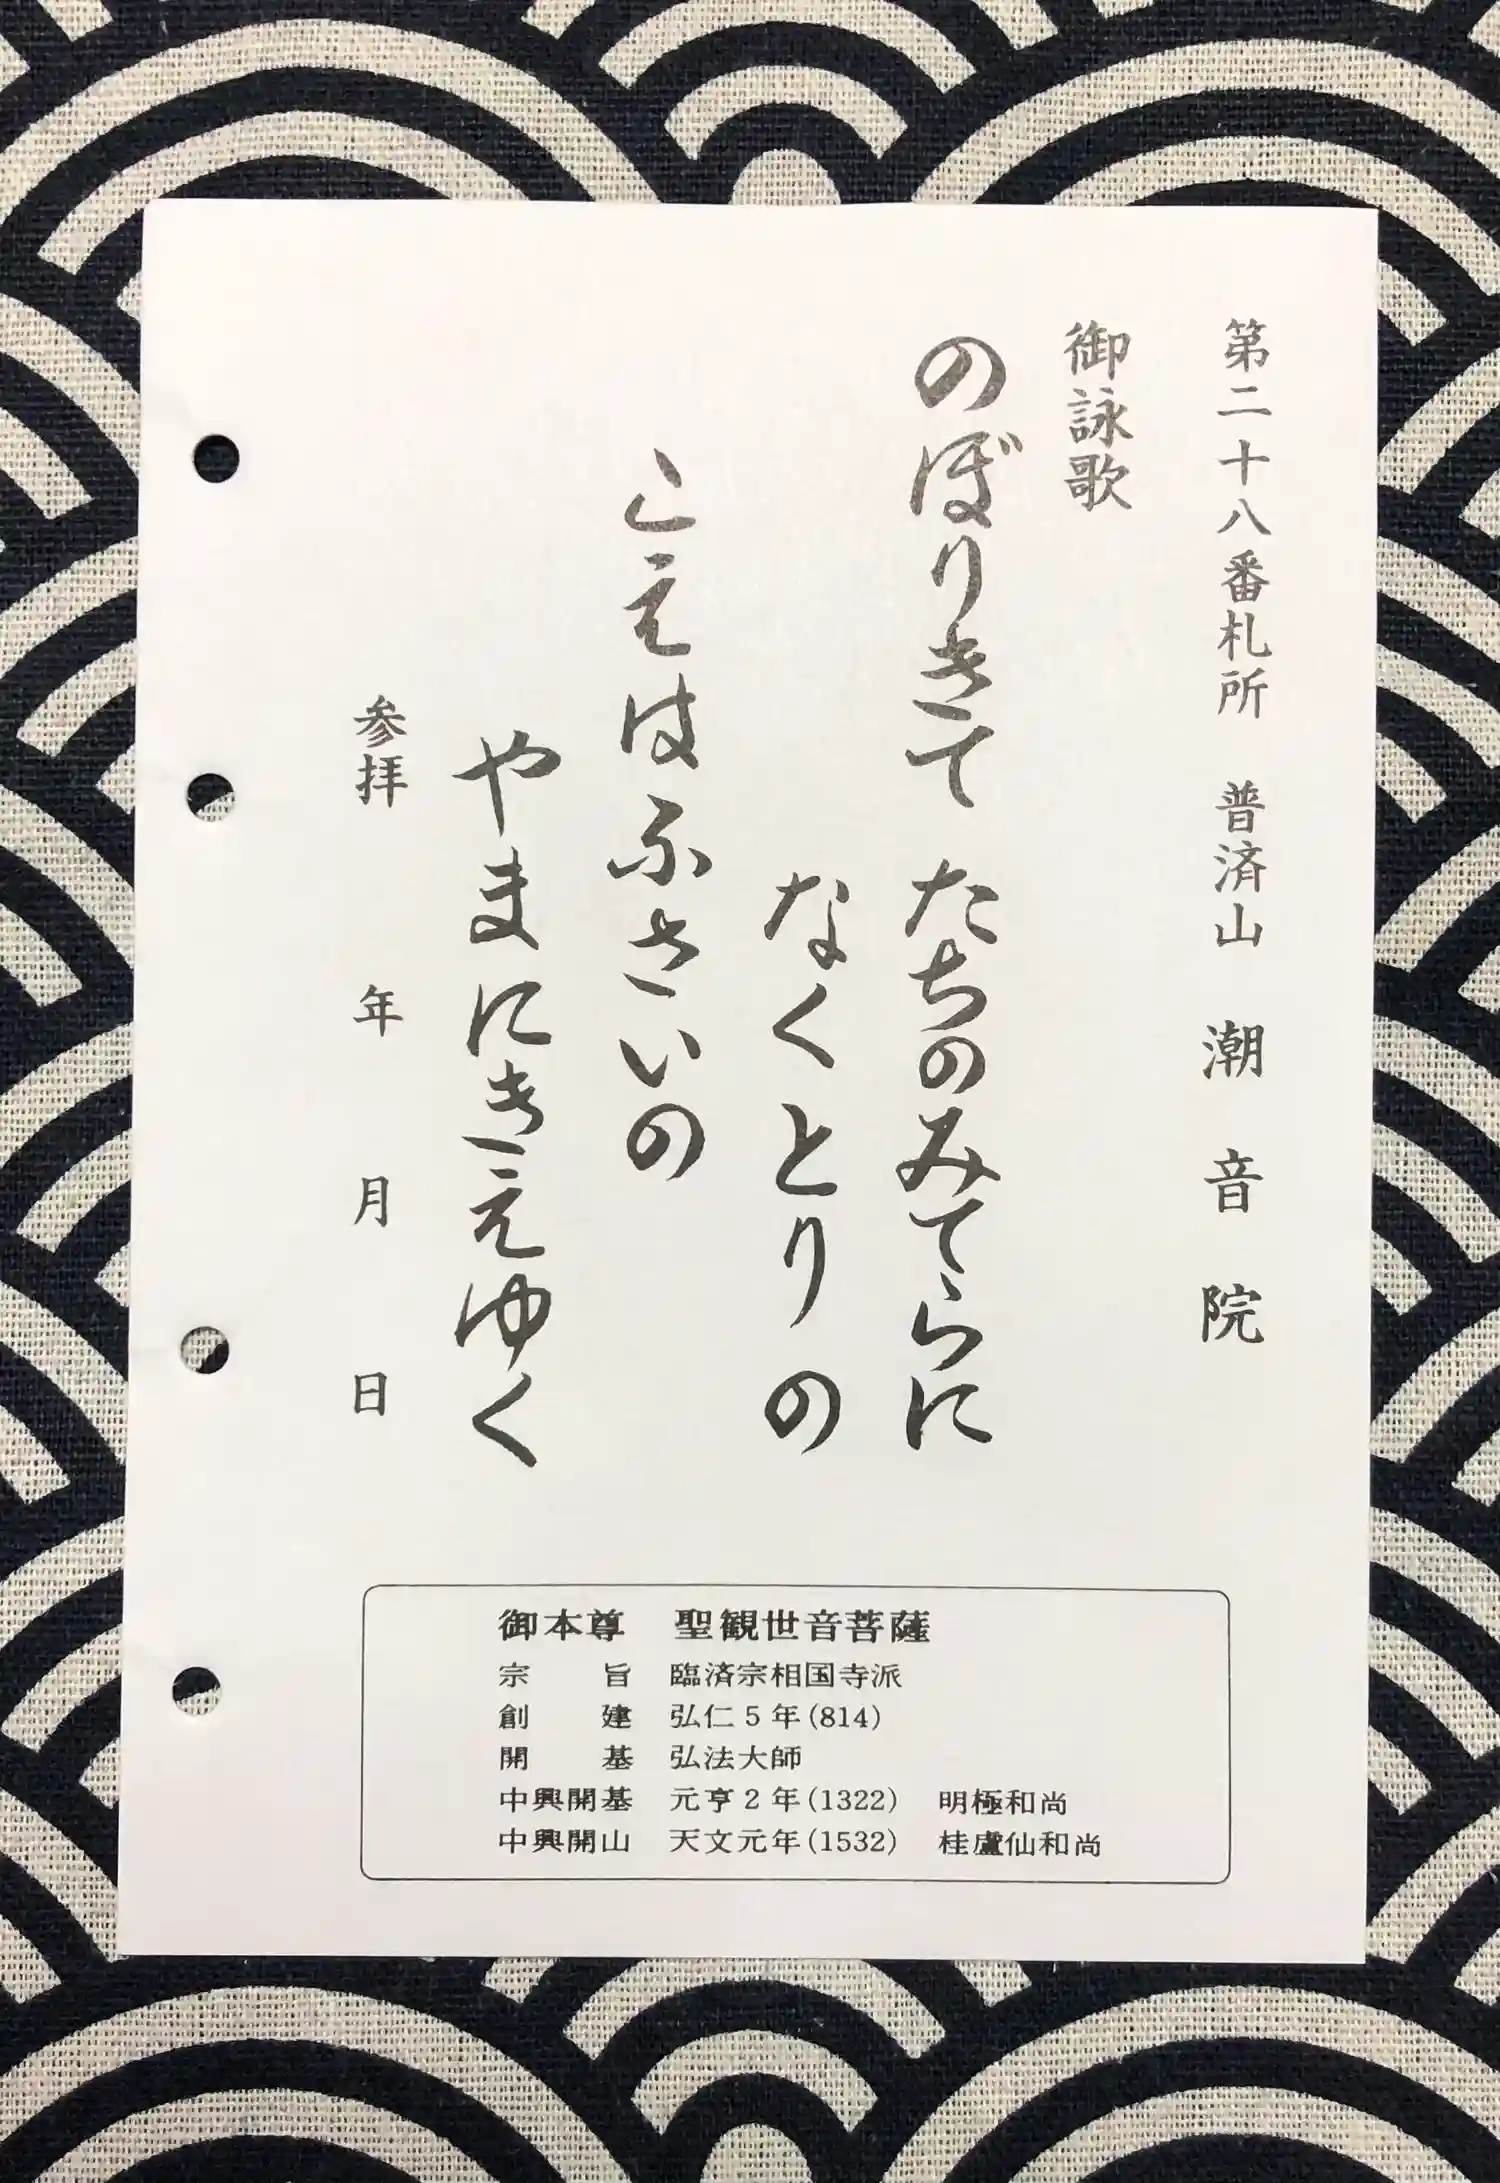 第二十八番札所 普済山 潮音院
御詠歌
のぼりきて たちのみてらに
なくとりの
こえはふさいの
やまにきえゆく
参拝 年 月 日
御本尊 聖観世音菩薩
宗旨 臨済宗相国寺派
創建 弘仁5年(814)
開基 弘法大師
中興開基 元亨2年(1322) 明極和尚
中興開山 天文元年(1532) 桂盧仙和尚